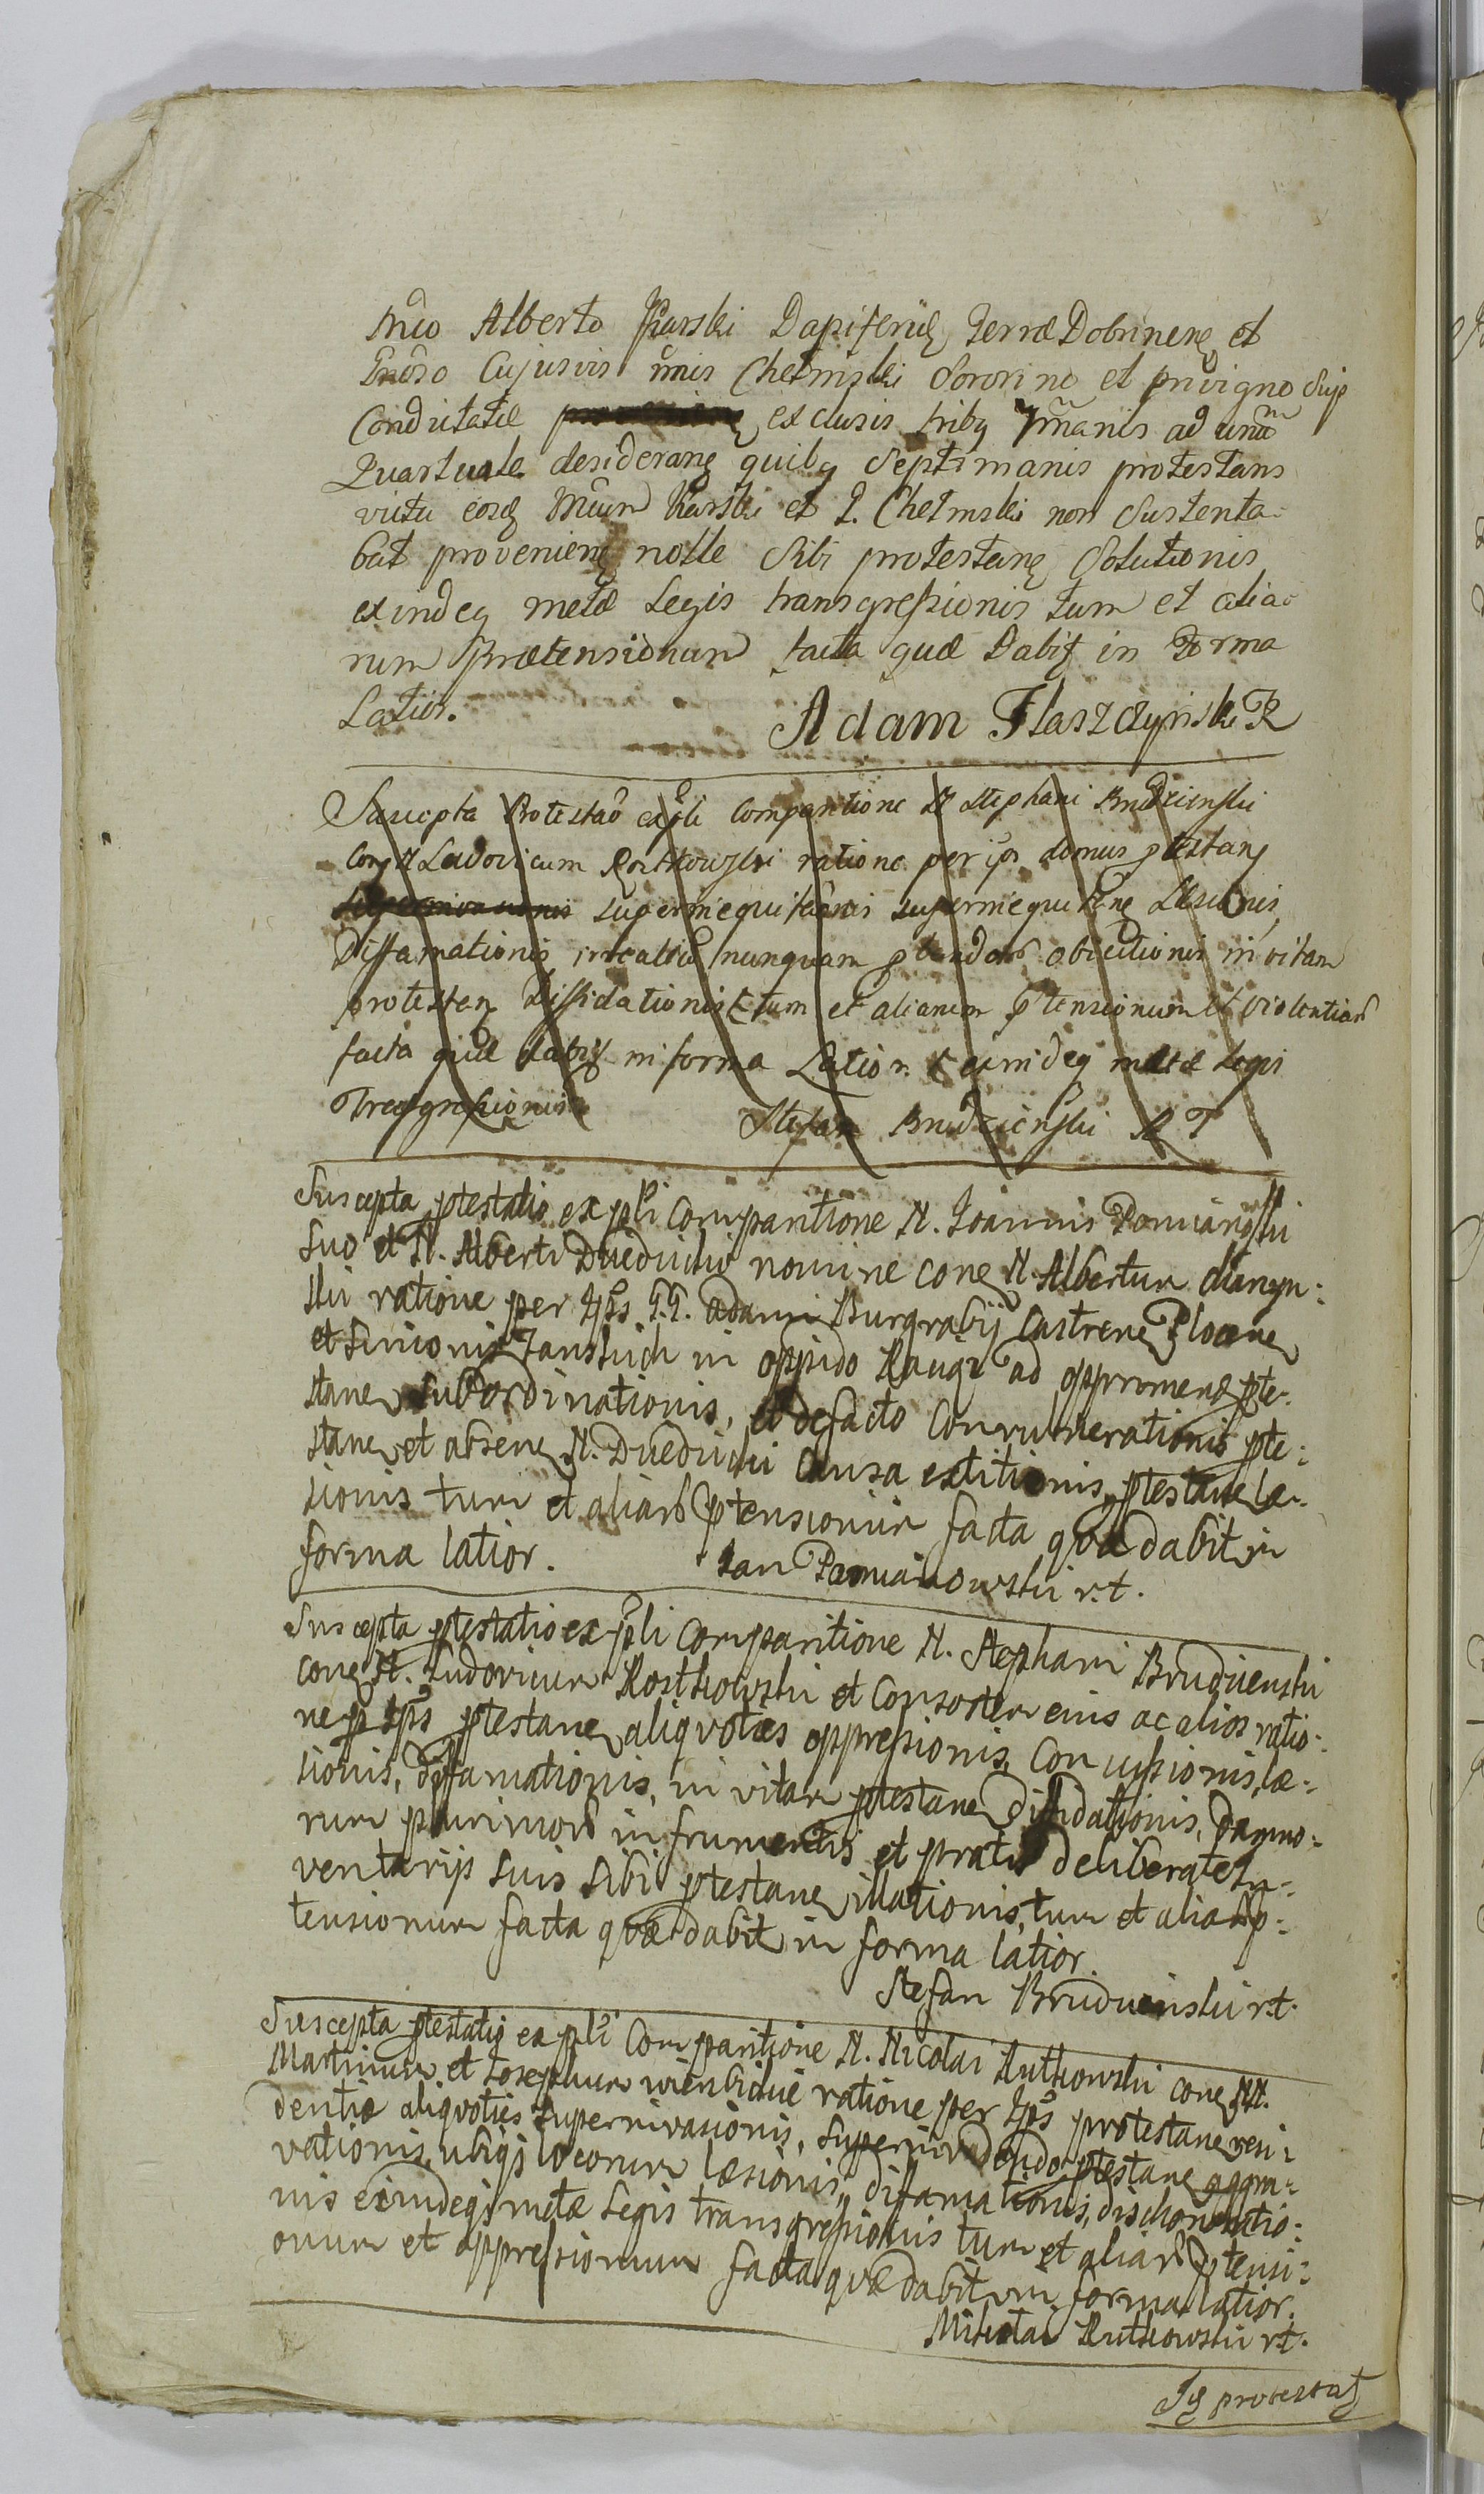 Mco Alberto Karski Dapiferū Terræ Dobrinen et
Gnoso Cujusvis nnis Chełmski Sororino et privigno Suis
Conductatæ exclusis tribq 7manis ad unā
Quartuale desideranę quibq Septimanis protestans
victu eosq Mcum Karski et G. Chełmski non Sustenta-
bat provenienę nolle Sibi protestanę Solutionis
exindeq metæ Legis transgressionis tum et alia-
rum Prætensionum facta quæ Dabit in Forma
Latior.
Adam Flaszczyński R
Suscepta Protestaō ex pli Comparitione N Stephani Brudzienski
Con N Ludovicum Rostkowski ratione per ips domus ptestanę
superinequitaōnis superinequitāne Læsionis
Diffamationis nunquam obiectionis in vitam
protestan Diffidationis tum et aliarum ptensionum et violentiarū
facta quæ dabit in forma Latior. exindeq metæ Legis
Tregressionis
Stefan Brudzienski R T
Suscepta ptestatio ex pli Comparitione N. Joannis Damianoski
suo et N. Alberti Duedzicki nomine cone N. Albertum
ski ratione per Ips G.G. Adami Burgrabij Castrene Plocene
et Simonis Janskich in oppido Raugi ad opprimenę pte-
stane subordinationis, et defacto Convulnerationis pte-
stane et absene N. Duedzicki Causa extitionis, ptestane læ-
sionis tum et aliarū ptensionum facta quæ dabit in
forma latior. Jan Damianowski r.t.
Suscepta ptestatio ex pli Comparitione N. Stephani Brudzienski
cone N. Ludovicum Rostkowski et Consortem eius ac alios ratio-
ne p Ips ptestane aliqvoties oppressionis, Concussionis, læ-
sionis, diffamationis, in vitam ptestane diffidationis, Damno-
rum plurimorū in frumentis et pratis deliberate In-
ventarijs suis sibi ptestane illationis, tum et aliarū p-
tensionum facta quæ dabit in forma latior.
Stefan Brudzienski r.t.
Suscepta ptestatio ex pli Comparitione N. Nicolai Rutkowski cone NN.
Martinum et Josephum wierzbickie ratione per Ips protestane resi-
dentiæ aliqvoties Superinvasionis, Superinvadendo ptestane aggra-
vationis, ubiqz locorum læsionis, difamationis, dischonoratio-
nis exindeqz metæ Legis transgressionis tum et aliarū ptensi-
onum et oppressionum facta quæ dabit in forma latior.
Mikołai Rutkowski r.t.
Is protestat